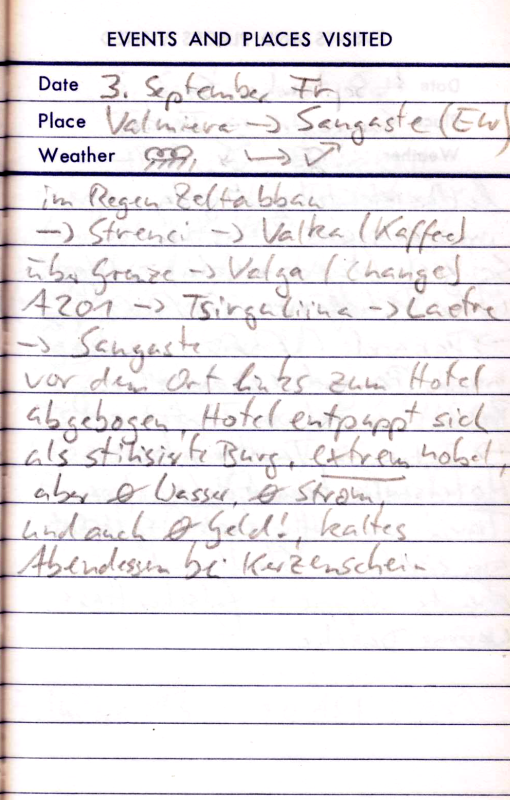 EVENTS AND PLACES VISITED
Date 3. September Fr.
Place Valmiera -> Sangaste (EW)
Weather
im Regen Zeltabbau
-> Strenci -> Valka (Kaffee)
über Grenze -> Valga (Change)
A201 -> Tsirguliina -> Laatre
-> Sangaste
vor dem Ort links zum Hotel
abgebogen, Hotel entpuppt sich
als stilisierte Burg, extrem nobel,
aber Ø Wasser, Ø Strom,
und auch Ø Geld!, kaltes
Abendessen bei Kerzenschein